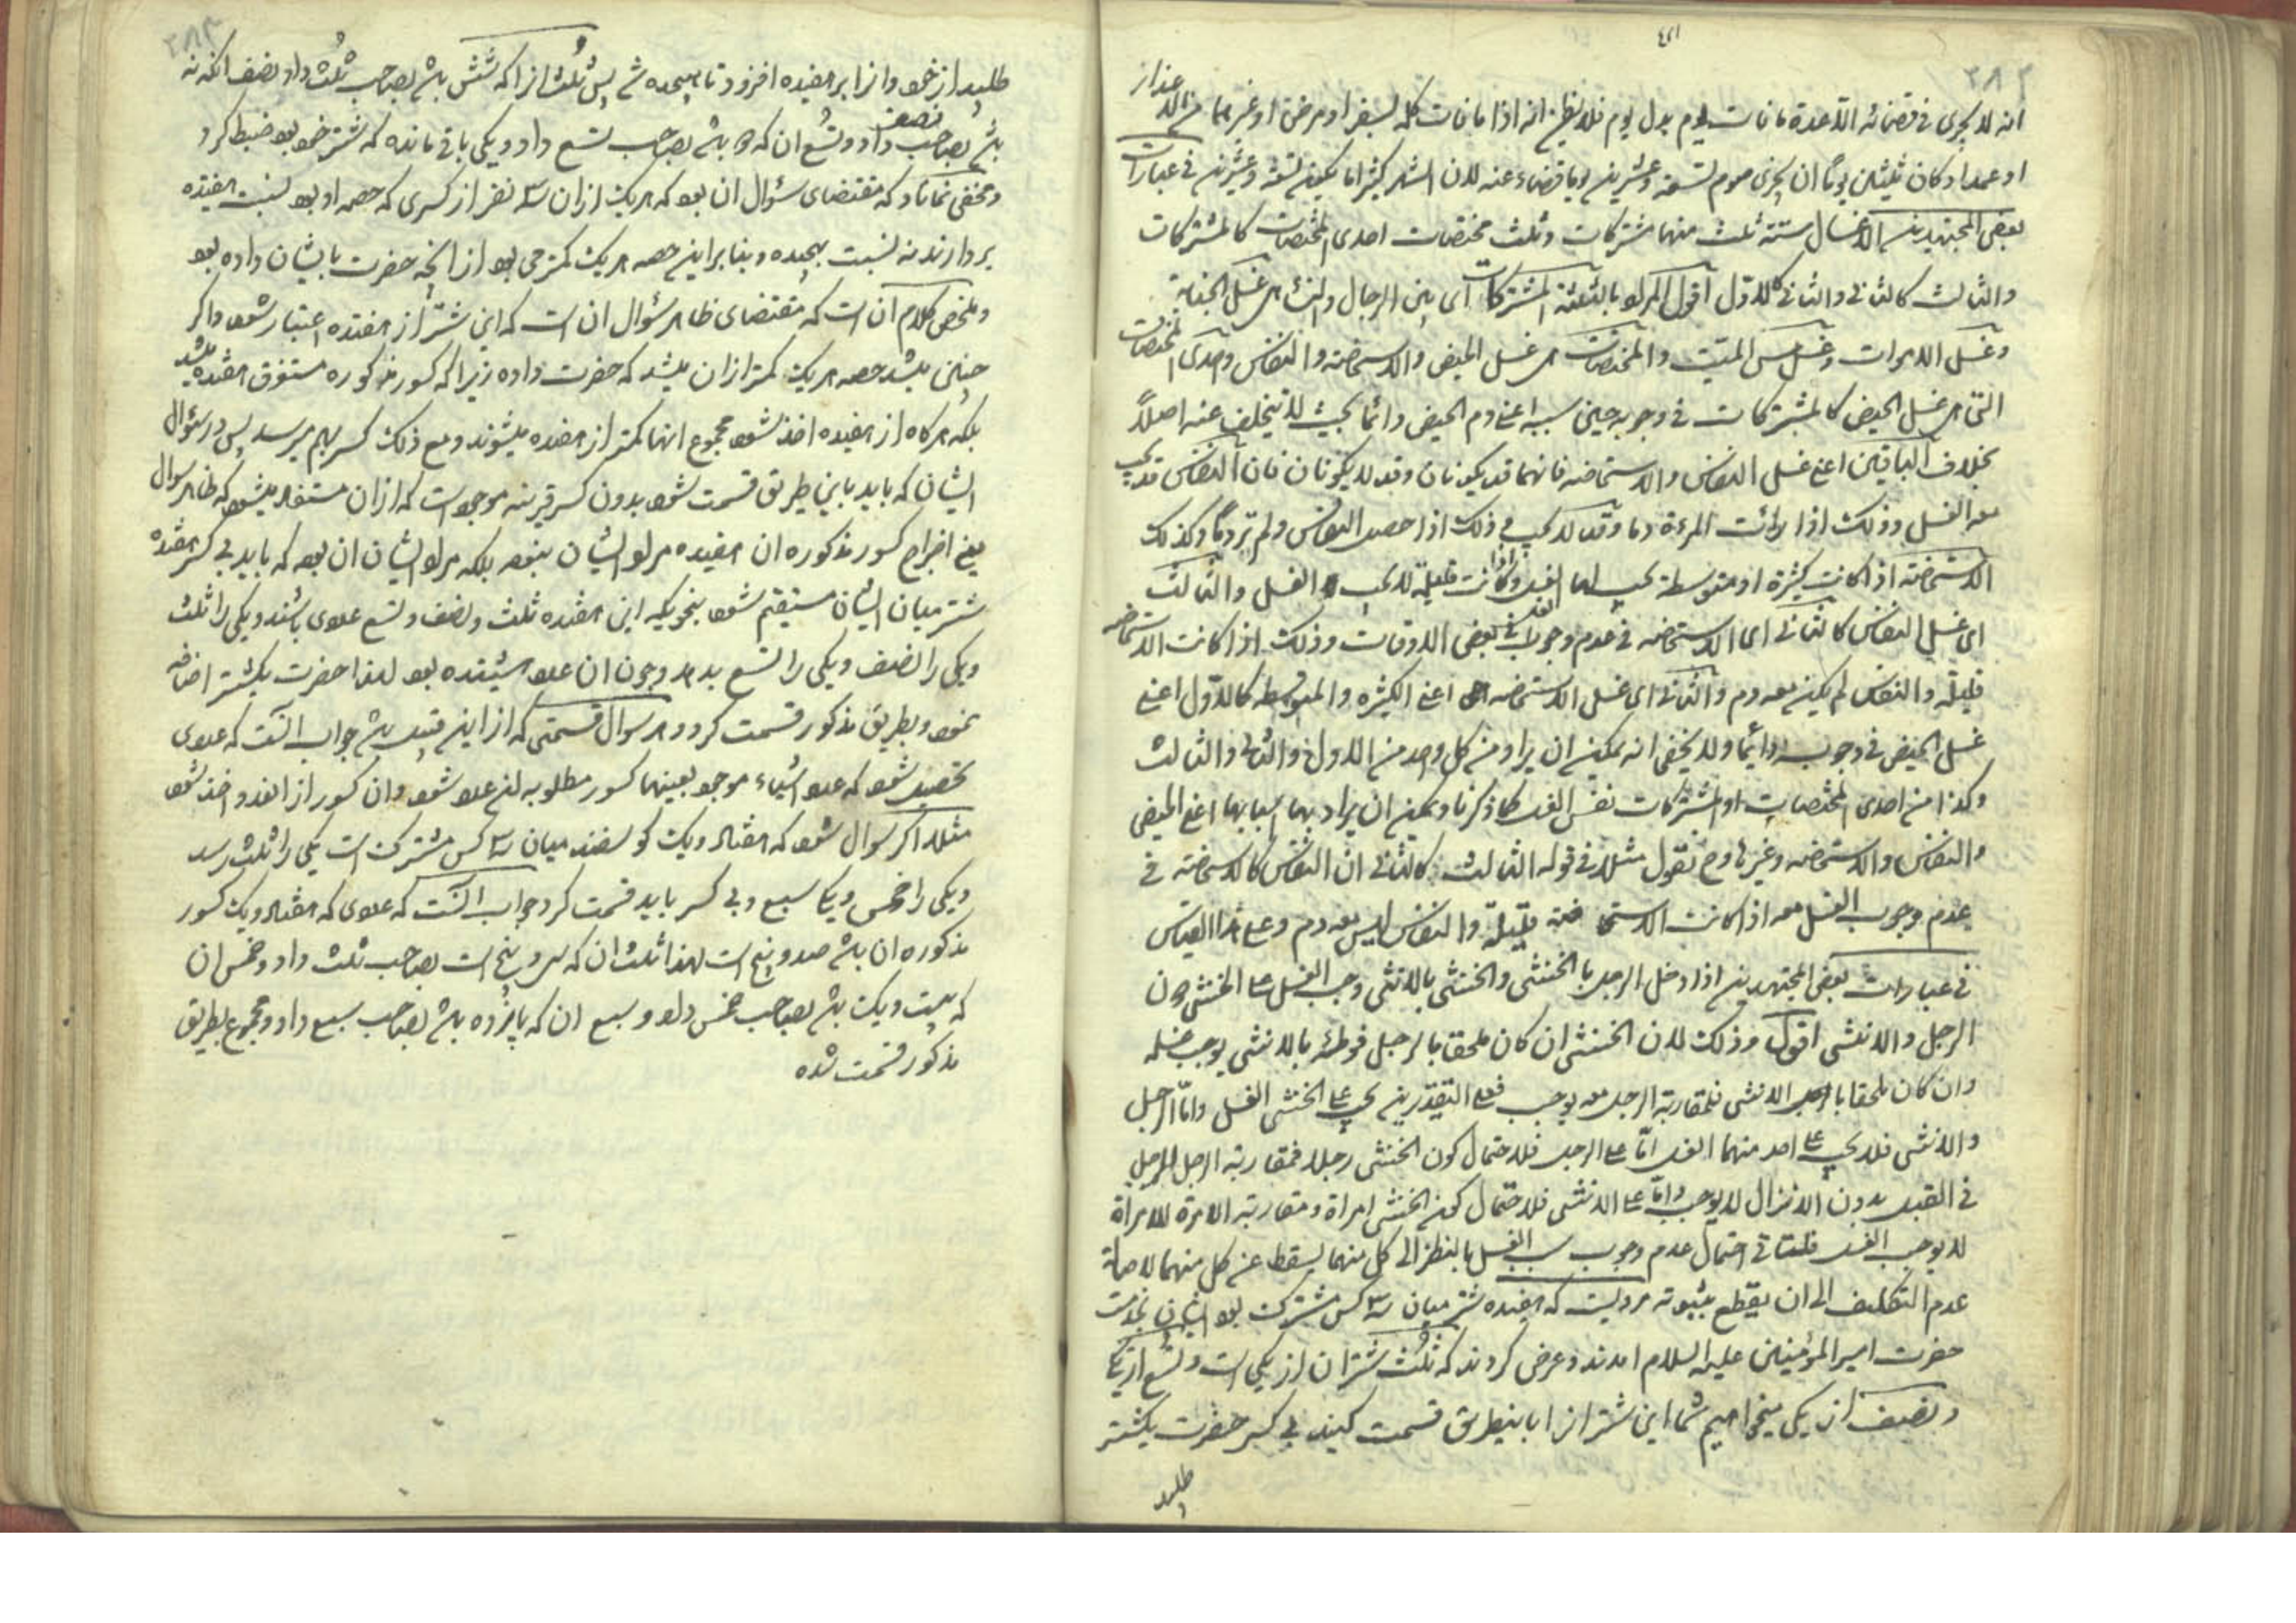 انه لا یجزی فی قضائه الا عدة ما فات یوم بدل یوم فلا انه اذا ما فات کله لسفر او مرض او غیرهما من الاعذار
او عمدا و کان ثلثین یوما ان یجزی صوم تسعة و عشرین یوما قضاء عنه لان الشهر کثیرا ما یکون تسعة و عشرین فی عبارات
بعض المجتهدین الاغسال ستة ثلث منها مشترکات و ثلث مختصات احدی المختصات کالمشترکات
والثالث کالثانی والثانی کالاول اقول المراد بالثلثة المشترکات ای بین الرجال والنساء هی غسل الجنابة
و غسل الاموات و غسل مس المیت والمختصات هی غسل الحیض والاستحاضه والنفاس واحدی المختصات
التی هی غسل الحیض کالمشترکات فی وجوبه حین سببه اعنی دم الحیض دائما بحیث لا یتخلف عنه اصلاً
بخلاف الباقین اعنی غسلی النفاس والاستحاضه فانهما قد یکونان و قد لا یکونان فان النفاس قد یجب
معه الغسل و ذلک اذا رأت المرءة دما و قد لا یجب و ذلک اذا حصل النفاس ولم تر دماً و کذلک
الاستحاضة اذا کانت کثیرة او متوسطة یجب لها الغسل و اذا کانت قلیلة لا یجب الغسل والثالث
ای غسل النفاس کالثانی ای الاستحاضه فی عدم وجوب الغسل فی بعض الاوقات و ذلک اذا کانت الاستحاضه
قلیلة والنفاس لم یکن معه دم والثانی ای غسل الاستحاضه اعنی الکثیره والمتوسطه کالاول اعنی
غسل الحیض فی وجوبه دائما ولا یخفی انه یمکن ان یراد من کل واحد من الاول والثانی والثالث
و کذا من احدی المختصات او المشترکات نفس الغسل کما ذکرنا و یمکن ان یراد بهما اسبابهما اعنی الحیض
والنفاس والاستحاضه و غیرها وح نقول مثلا فی قوله الثالث کالثانی ان النفاس کالاستحاضة فی
عدم وجوب الغسل معه اذا کانت الاستحاضة قلیلة والنفاس لیس معه دم و علی هذا القیاس
فی عبارات بعض المجتهدین اذا دخل الرجل بالخنثی والخنثی بالانثی وجب الغسل علی الخنثی دون
الرجل والانثی اقول و ذلک لان الخنثی ان کان ملحقا بالرجل فوطئه بالانثی یوجب غسله
وان کان ملحقا بالانثی فمقاربة الرجل معه یوجب فعلی التقدیرین یجب علی الخنثی الغسل واما الرجل
والانثی فلا یجب علی احد منهما الغسل اما علی الرجل فلاحتمال کون الخنثی رجلا فمقاربة الرجل للرجل
فی القبل بدون الانزال لا یوجب واما علی الانثی فلاحتمال کون الخنثی امراة و مقاربة الامرة للامراة
لا یوجب الغسل احتمال عدم وجوب سبب الغسل بالنظر الی کل منهما یسقط عن کل منهما لاصالة
عدم التکلیف الی ان یقطع بثبوته مرویست که هفده شتر میان سه کس مشترک بود ایشان بخدمت
حضرت امیرالمؤمنین علیه السلام امدند و عرض کردند که ثلث شتران از یکی است و تسع از یکی
و نصف از یکی میخواهیم شما این شتران را باینطریق قسمت کنید بی کسر حضرت یکشتر
طلبید
طلبید از خود و انرا بر هفده افزود تا هیجده شد پس ثلث انرا که شش باشد بصاحب ثلث داد و نصف انکه نه
باشد بصاحب نصف داد و تسع ان که دو باشد بصاحب تسع داد و یکی باقی مانده که شتر خود بود ضبط کرد
و مخفی نماناد که مقتضای سؤال ان بود که هر یک از ان سه نفر از کسری که حصه او بود بنسبت هفده
بردارند نه نسبت بهیجده و بنابراین حصه هر یک کمتر می بود از انچه حضرت بایشان داده بود
و ملخص کلام آن است که مقتضای ظاهر سؤال ان است که این شتر از هفده اعتبار شود و اگر
چنین میشد حصه هر یک کمتر از ان میشد که حضرت داده زیرا که کسور مذکوره مستغرق هفده میشد
بلکه هرگاه از هفیده اخذ شود مجموع انها کمتر از هفده میشوند و مع ذلک کسر بهم میرسد پس در سؤال
ایشان که باید باین طریق قسمت شود بدون کسر قرینه موجود است که از ان مستفاد میشود که ظاهر سوال
یعنی اخراج کسور مذکوره ان هفیده مراد ایشان نبود بلکه مراد ایشان ان بود که باید بی کسر هفده
شتر میان ایشان مستقیم شود بنحویکه این هفده ثلث و نصف و تسع عددی باشند و یکی را ثلث
و یکی را نصف و یکی را تسع بدهد و چون ان عدد هیجده بود لهذا حضرت یکشتر اضافه
نمود و بطریق مذکور قسمت کرد و هر سوال قسمتی که از این قبیل باشد جواب انست که عددی
تحصیل شود که عدد اشیاء موجود بعینها کسور مطلوبه ان عدد شود و ان کسور از انعدد اخذ شود
مثلا اگر سوال شود که هفتاد و یک گوسفند میان سه کس مشترک است یکی را ثلث رسد
و یکی را خمس و یکی سبع و بی کسر باید قسمت کرد جواب انست که عددی که هفتاد و یک کسور
مذکوره ان باشد صد و پنج است لهذا ثلث ان که سی و پنج است بصاحب ثلث داد و خمس ان
که بیست و یک باشد بصاحب خمس داد و سبع ان که پانزده باشد بصاحب سبع داد و مجموع بطریق
مذکور قسمت شده